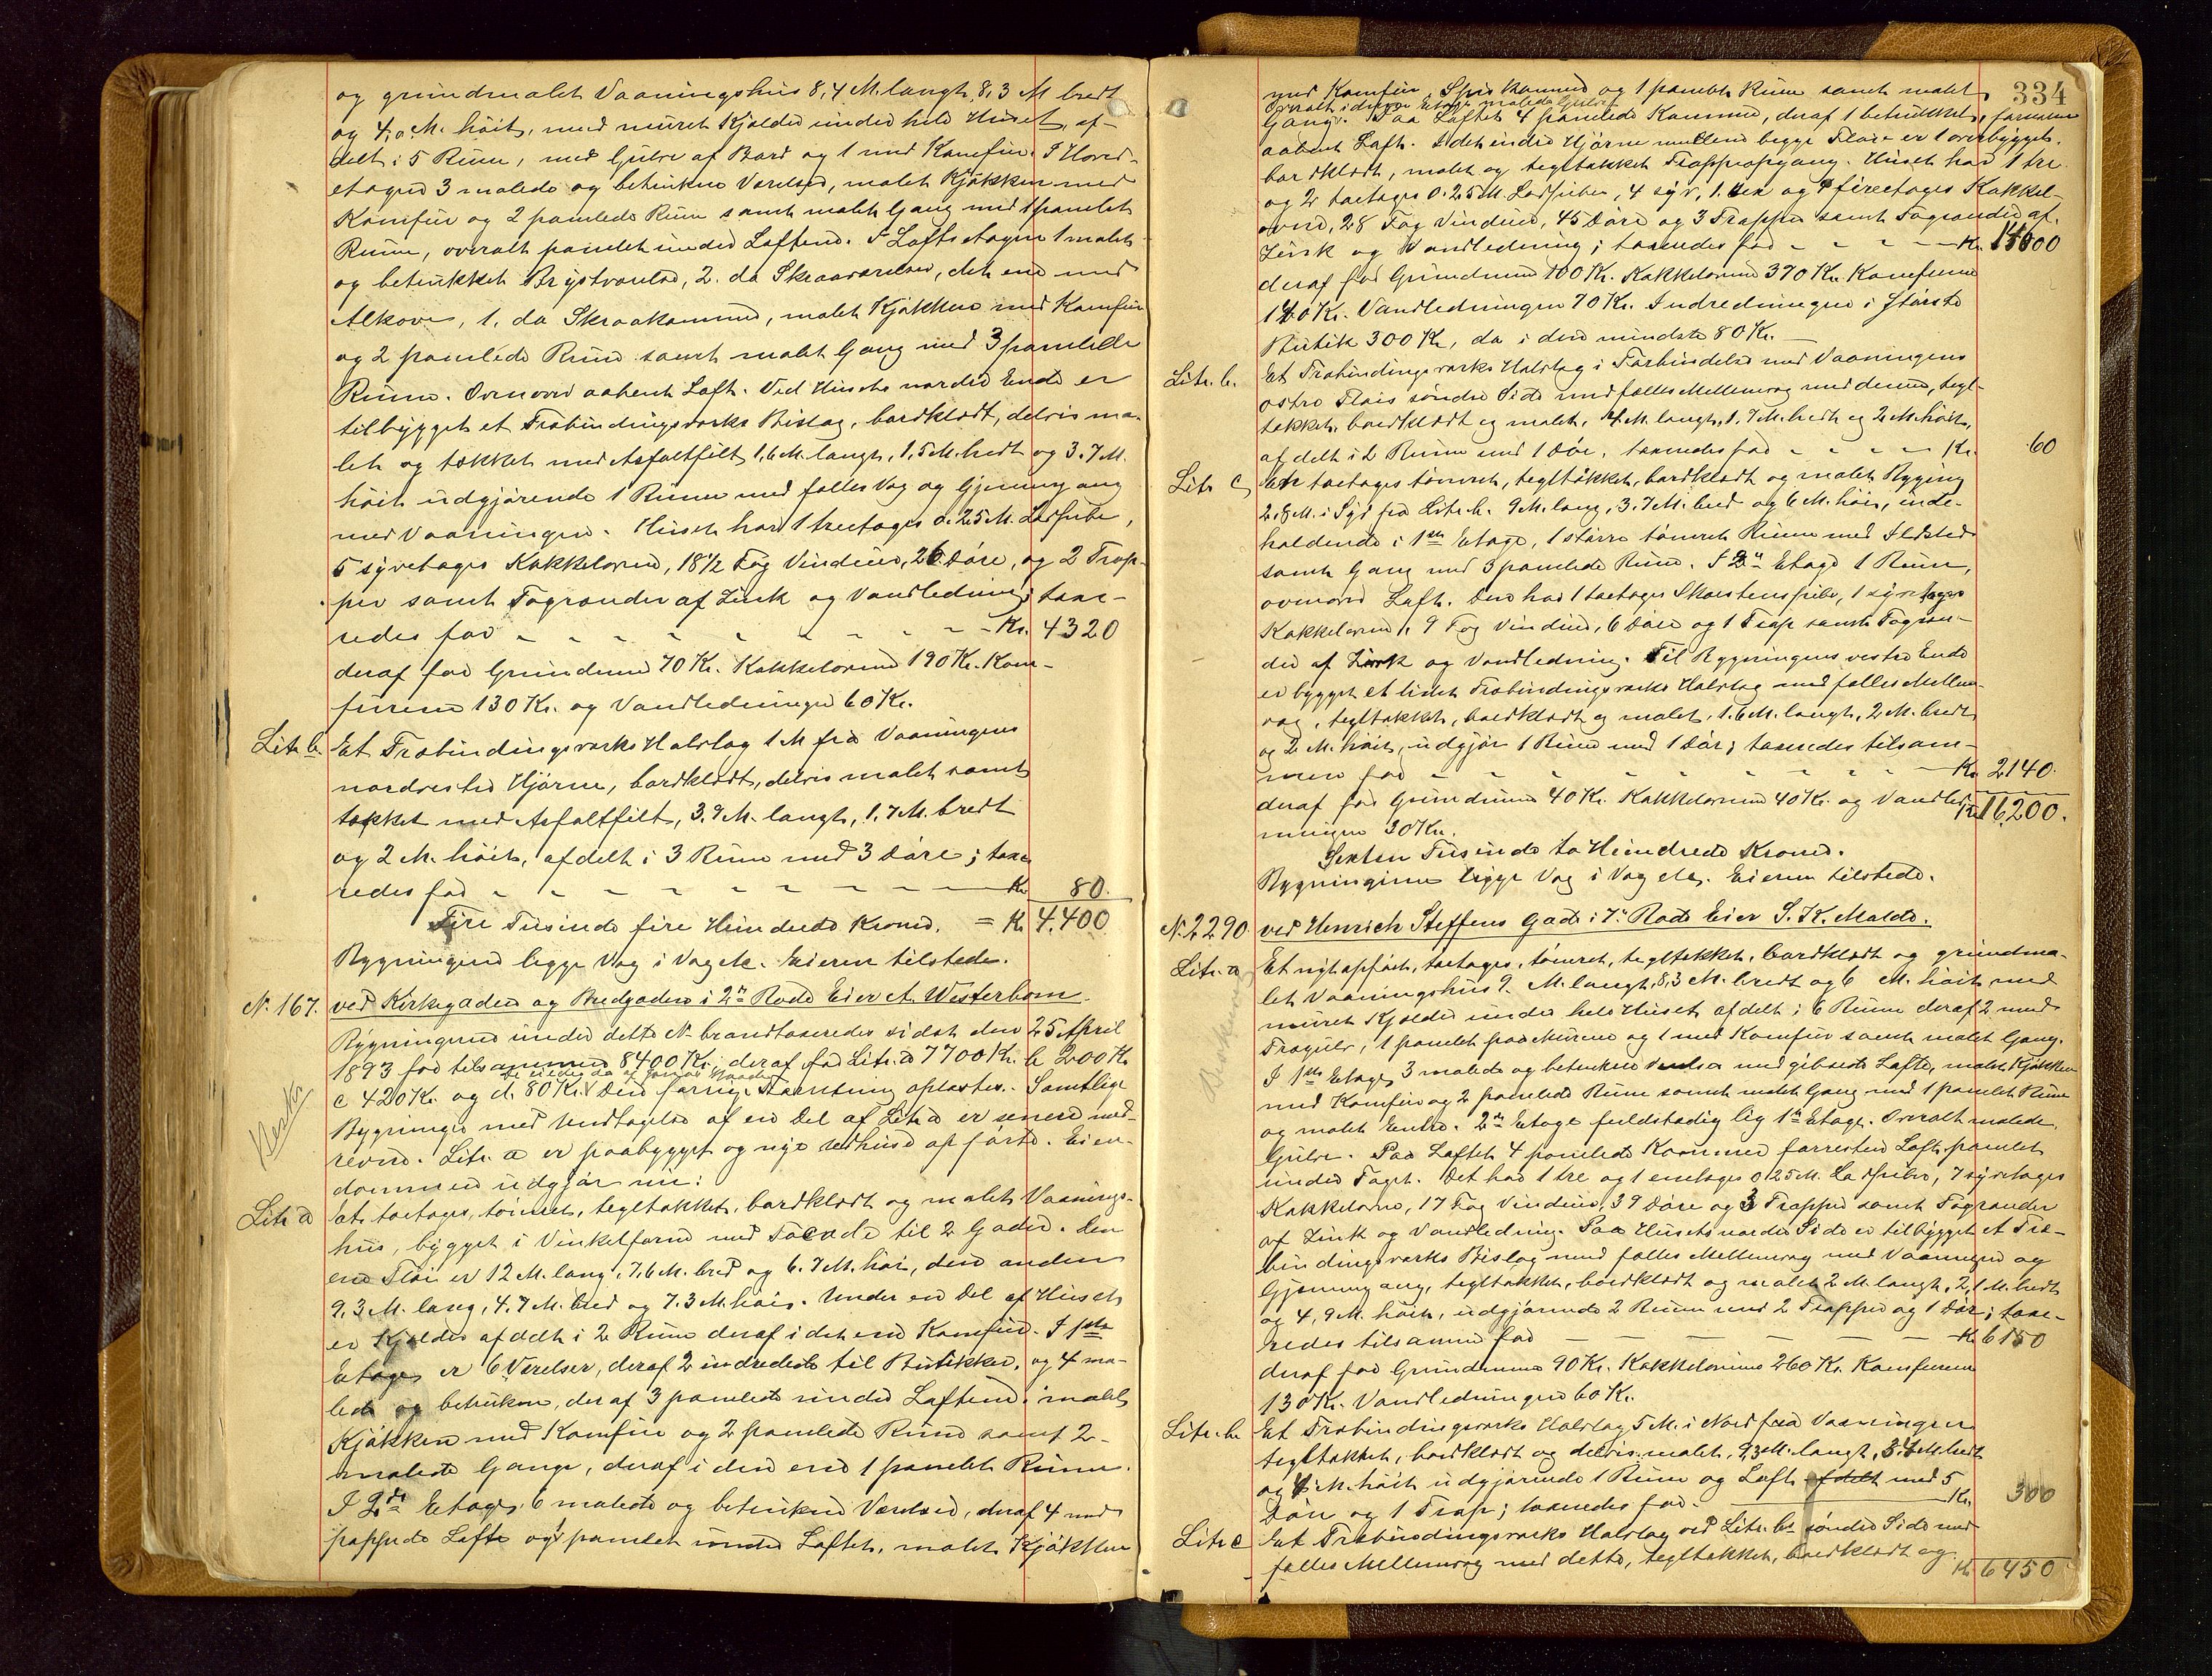 og grundmalet Vaaningshus 8,4 M. langt, 8,3 M bredt
og 4,0 M. höit, med muret Kjelder under hele Huset, af-
delt i 5 Rum, med Gulve af Bord og 1 med Komfür. I Hoved-
etagen 3 malede og betrukne Værelser, malet Kjökken med
Komfür og 2 panelede Rum samt malet Gang med 1 panelet
Rum, overalt panelet under Loftene. I Loftsetagen 1 malet
og betrukket Brystværelse, 2. do Skraaværelser, det ene med
Alkove, 1. do Skraakammer, malet Kjökken med Komfür
og 2 panelede Rum samt malet Gang med 3 panelede
Rum. Ovenover aabent Loft. Ved Husets nordre Ende er
tilbygget et Træbindingsværks Bislag, bordklædt, delvis ma-
let og tækket med Asfaltfilt, 1,6 M. langt, 1,5 M. bredt og 3.7 M.
höit udgjörende 1 Rum med fælles Væg og Gjennemgang
med Vaaningen. Huset har 1 treetages 0.25 M. Lodpibe,
5 syvetages Kakkelovne, 18½ Fag Vinduer, 26 Döre, og 2 Trap-
per samt Tagrender af Zink og Vandledning; taxe-
redes for - - - - Kr. 4320
deraf for Grundmur 70 Kr. Kakkelovne 190 Kr. Kom-
fürene 130 Kr. og Vandledningen 60 Kr.
Litr. b. Et Træbindingsværks Halvtag 1 M fra Vaaningens
nordvestre Hjörne, bordklædt, delvis malet samt
tækket med Asfaltfilt, 3.9 M. langt, 1.7 M. bredt
og 2 M. höit, afdelt i 3 Rum med 3 Döre; taxe-
redes for - - - - Kr. 80.
Fire Tusinde fire Hundrede Kroner. = Kr 4.400
Bygningerne ligge Væg i Væg etc. Eieren tilstede.
N. 167. ved Kirkegaden og Bredgaden i 2n Rode Eier A. Westerbom
Bygningerne under dette N. brandtaxeredes sidst den 25 April
1893 for tilsammen 8400 Kr. deraf for Litr. a 7700 Kr. b 200 Kr
c 420 Kr. og d. 80 Kr. Den forrige Taxering oplæstes. Samtlige
Bygninger med Undtagelse af en Del af Litr. a er senere ned-
revne. Litr. a er paabygget og nye Udhuse opförte. Eien-
dommen udgjör nu:
Litr. a Et toetages, tömret, tegltækket, bordklædt og malet Vaanings-
hus, bygget i Vinkelform med Facade til 2 Gader. Den
ene Flöi er 12 M. lang, 7,6 M. bred og 6.7 M. höi, den anden
9,3 M. lang, 4.7 M. bred og 7.3 M. höi. Under en Del af Huset
er Kjelder afdelt i 2 Rum deraf i det ene Komfür. I 1ste
Etage er 6 Værelser, deraf 2 indredede til Butikker, og 4 ma-
lede og betrukne, deraf 3 panelede under Loftene, malet
Kjökken med Komfür og 2 panelede Rum samt 2
malede Gange, deraf i den ene 1 panelet Rum.
I 2den Etage 6 malede og betrukne Værelser, deraf 4 med
pappede Lofte og 1 panelet under Loftet, malet Kjökken
334
med Komfür, Spiskammer og 1 panelet Rum samt malet
Overalt i denne Etage malede Gulve
Gang. Paa Loftet 4 panelede Kammer, deraf 1 betrukket, forresten
aabent Loft. I det indre Hjörne mellem begge Flöie er 1 overbygget,
bordklædt, malet og tegltækket Trappeopgang. Huset har 1 tre
og 2 toetages 0.25 M. Lodpiber, 4 syv, 1. sex og 4 fireetages Kakkel-
ovne, 28 Fag Vinduer, 45 Döre og 3 Trapper samt Tagrender af
Zink og Vandledning; taxeredes for - - - - Kr. 14000
deraf for Grundmur 100 Kr. Kakkelovne 370 Kr. Komfurene
140 Kr. Vandledningen 70 Kr. Indredningen i störste
Butik 300 Kr, do i den mindste 80 Kr.
Litr. b. Et Træbindingsværks Halvtag i Forbindelse med Vaaningens
östre Flöis söndre Side med fælles Mellemvæg med denne, tegl-
tækket, bordklædt og malet, 4 M. langt, 1.7 M. bredt og 2 M. höit,
afdelt i 2 Rum med 1 Dör, taxeredes for - - - - Kr. 60
Litr. c En toetages tömret, tegltækket, bordklædt og malet Bygning
2.8 M. i Syd fra Litr. b. 9 M. lang, 3.7 M. bred og 6 M. höi, inde-
holdende i 1ste Etage, 1 större tömret Rum med Ildsted
samt Gang med 3 panelede Rum. I 2n Etage 1 Rum,
ovenover Loft. Den har 1 toetages Skorstenspibe, 1 syvetages
Kakkelovn, 9 Fag Vinduer, 6 Döre og 1 Trap samt Tagren-
der af Zink og Vandledning. Til Bygningens vestre Ende
er bygget et lidet Træbindingsværks Halvtag med fælles Mellem-
væg, tegltækket, bordklædt og malet, 1.6 M. langt, 2 M. bredt
og 2 M. höit, udgjör 1 Rum med 1 Dör; taxeredes tilsam-
men for - - - - Kr 2140.
deraf for Grundmur 40 Kr. Kakkelovne 40 Kr. og Vandled-
ningen 30 Kr. Kr 16.200.
Sexten Tusinde to Hundrede Kroner.
Bygningerne ligge Væg i Væg etc. Eieren tilstede.
N. 2290. ved Henrich Steffens Gade i 7n Rode Eier S. K. Molde.
Litr. a Et nyt opfört, toetages, tömret, tegltækket, bordklædt og grundma-
let Vaaningshus 9. M. langt, 8,3 M. bredt og 6 M. höit med
muret Kjelder under hele Huset afdelt i 6 Rum deraf 2 med
Trægulv, 1 panelet paa Murene og 1 med Komfür samt malet Gang.
I 1ste Etage, 3 malede og betrukne Værelser med gibsede Lofte, malet Kjökken
med Komfür og 2 panelede Rum samt malet Gang med 1 panelet Rum
og malet Entre. 2n Etage fuldstædig lig 1n Etage. Overalt malede
Gulve. Paa Loftet 4 panelede Kammer forresten Loft panelet
under Taget. Det har 1 tre og 1 enetages 0.25 M. Lodpibe, 7 syvetages
Kakkelovne, 17 Fag Vinduer, 39 Döre og 3 Trapper samt Tagrender
af Zink og Vandledning. Paa Husets nordre Side er tilbygget et Træ-
bindingsværks Bislag med fælles Mellemvæg med Vaaningen og
Gjennemgang, tegltækket, bordklædt og malet 2 M. langt, 2,1 M. bredt
og 4,9 M. höit, udgjörende 2 Rum med 2 Trapper og 1 Dör; taxe-
redes tilsammen for - - - - Kr 6150
deraf for Grundmur 90 Kr. Kakkelovne 260 Kr. Komfurene
130 Kr. Vandledningen 60 Kr.
Litr. b. Et Træbindingsværks Halvtag 5 M. i Nord fra Vaaningen
tegltækket, bordklædt og delvis malet, 9,3 M. langt, 3.4 M. bredt
og 4 M. höit udgjörende 1 Rum og Loft med 5
Döre og 1 Trap; taxeredes for - Kr. 300
Litr. c Et Træbindingsværks Halvtag ved Litr. bs söndre Side med
fælles Mellemvæg med dette, tegltækket, bordklædt og
Kr. 6450